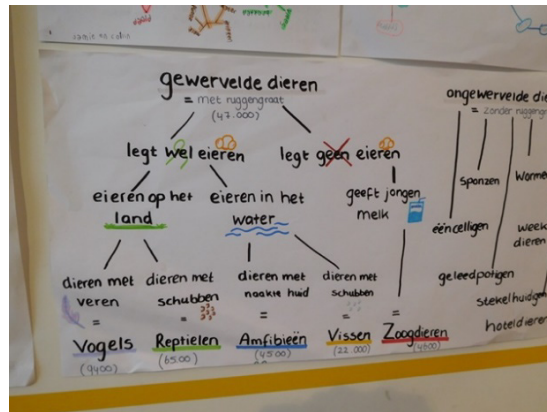 gewervelde dieren
= met ruggengraat
(47.000)
legt wel eieren
legt geen eieren
eieren op het
land
eieren in het
water
geeft jongen
melk
dieren met
veren
=
Vogels
(9400)
dieren met
schubben
=
Reptielen
(6500)
dieren met
naakte huid
=
Amfibieën
(4500)
dieren met
schubben
=
Vissen
(22.000)
=
Zoogdieren
(4500)
ongewervelde die
= zonder ruggengr
sponzen
worme
ééncelligen
week
dieren
geleedpotigen
stekelhuidge
holtedieren